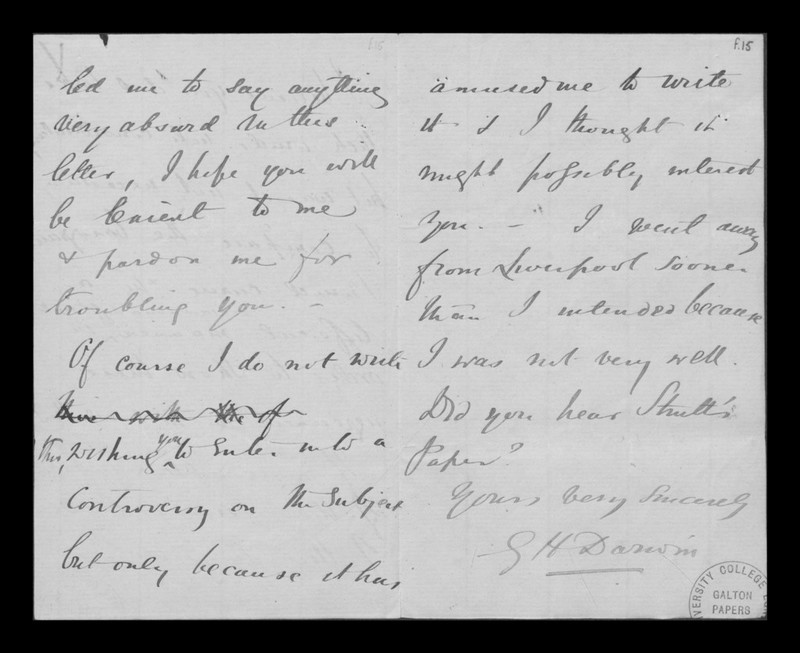 f.15
led me to say anything
very absurd in this
letter, I hope you will
be lenient to me
& pardon me for
troubling you. –
Of course I do not write
this, wishing you to enter into a
controversy on the subject
but only because it has
amused me to write
it & I thought it
might possibly interest
you. – I went away
from Liverpool sooner
than I intended because
I was not very well.
Did you hear
Paper?
Yours very sincerely
G H Darwin
UNIVERSITY COLLEGE
GALTON
PAPERS